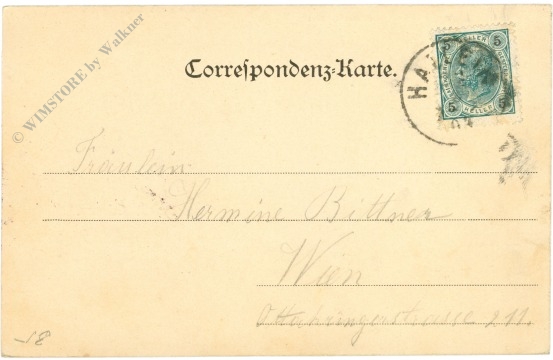 © WIMSTORE by Walkner
Correspondenz-Karte.
5 HELLER 5
5 HELLER 5
HA
Fräulein
Hermine Bittner
Wien
Ottakringerstrasse 211.